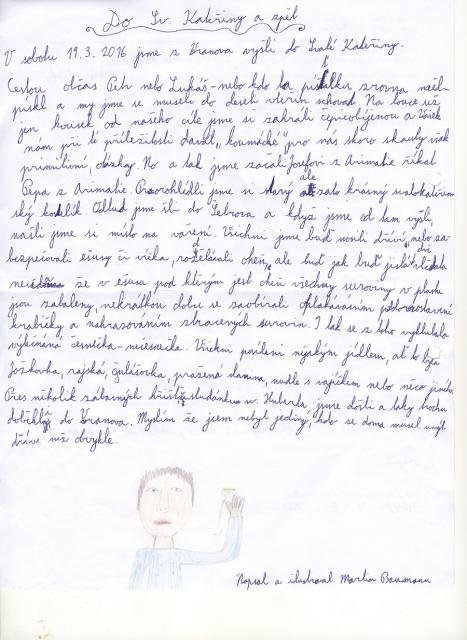 Do Sv. Kateřiny a zpět
V sobotu 19.3. 2016 jsme z Vranova vyšli do Svaté Kateřiny.
Cestou občas Petr nebo Lukáš-nebo kdo ta píšťalku zrovna měl-
pískl a my jsme se museli do deseti vteřin schovat. Na louce už
jen kousek od našeho cíle jsme si zahráli
nám při té příležitosti dával „koumácké" pro nás skoro skauty však
primitivní, otázky. No a tak jsme začali Josefovi z Arimatie říkat
Pepa z Arimatie. Prohlédli jsme si starý ale krásný svatokateřin-
ský kostelík. Odtud jsme šli do Šebrova a když jsme od tam vyšli,
našli jsme si místo na vaření. Všichni jsme buď nosili dříví, nebo za-
bezpečovali ešusy či víčka, rozdělávali oheň, ale buď jak buď
že v ešusu pod kterým jest oheň všechny suroviny v plastu
jsou zabaleny, nekrátkou dobu se zaobírali
krabičky a nahrazováním ztracených surovin. I tak se z toho vyklubala
výborná Všichni posíleni nějakým jídlem, ať to byla
čočkovka, rajská, gulášovka, pražená slanina, nudle s vajíčkem nebo něco jiného.
Přes několik zábavných studánku sv. Huberta, jsme došli a taky trochu
doběhly do Vranova. Myslím že jsem nebyl jediný, kdo se doma musel umýt
dříve než obvykle.
Napsal a ilustroval Martin Baumann